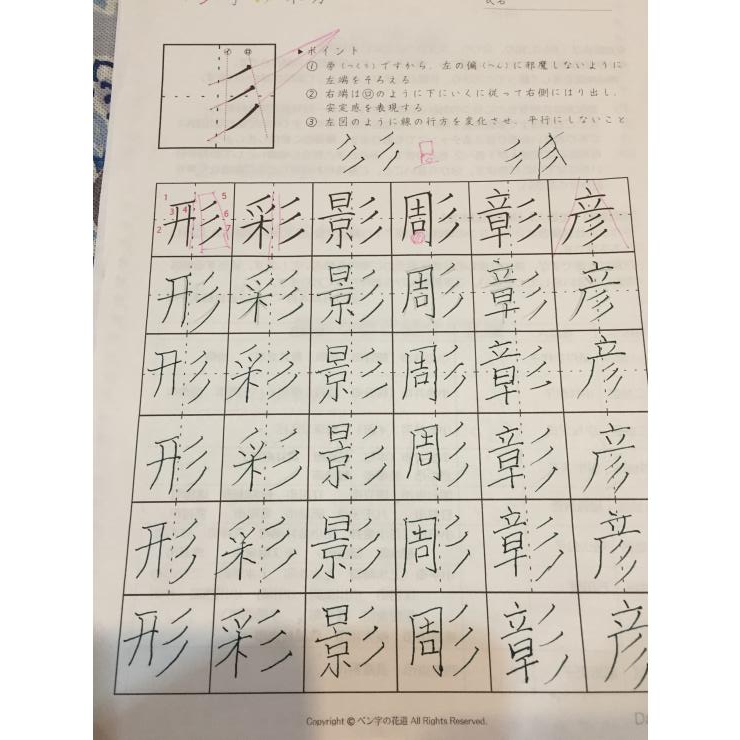 氏名
▶ポイント
① 旁(つくり)ですから、左の偏(へん)に邪魔しないように
左端をそろえる
② 右端は㋺のように下にいくに従って右側にはり出し、
安定感を表現する
③ 左図のように線の行方を変化させ、平行にしないこと
㋑ ㋺
彡
彡彡 彡
形 彩 影 彫 彰 彦
1 2 3 4 5 6 7
形 彩 影 彫 彰 彦
形 彩 影 彫 彰 彦
形 彩 影 彫 彰 彦
形 彩 影 彫 彰 彦
形 彩 影 彫 彰 彦
Copyright © ペン字の花道 All Rights Reserved.